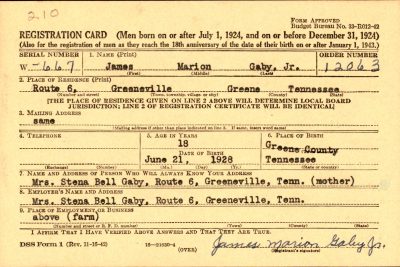 210
FORM APPROVED
Budget Bureau No. 33-R012-42
REGISTRATION CARD (Men born on or after July 1, 1924, and on or before December 31, 1924)
(Also for the registration of men as they reach the 18th anniversary of the date of their birth on or after January 1, 1943.)
SERIAL NUMBER 1. NAME (Print) ORDER NUMBER
W-667 James Marion Gaby, Jr. 12063
(First) (Middle) (Last)
2. PLACE OF RESIDENCE (Print)
Route 6, Greeneville Greene Tennessee
(Number and street) (Town, township, village or city) (County) (State)
[THE PLACE OF RESIDENCE GIVEN ON LINE 2 ABOVE WILL DETERMINE LOCAL BOARD
JURISDICTION; LINE 2 OF REGISTRATION CERTIFICATE WILL BE IDENTICAL]
3. MAILING ADDRESS
same
[Mailing address if other than place indicated on line 2. If same, insert word same]
4. TELEPHONE 5. AGE IN YEARS 6. PLACE OF BIRTH
18 Greene County
DATE OF BIRTH (Town or county)
June 21, 1928 Tennessee
(Exchange) (Number) (Mo.) (Day) (Yr.) (State or country)
7. NAME AND ADDRESS OF PERSON WHO WILL ALWAYS KNOW YOUR ADDRESS
Mrs. Stena Bell Gaby, Route 6, Greeneville, Tenn. (mother)
8. EMPLOYER'S NAME AND ADDRESS
Mrs. Stena Bell Gaby, Route 6, Greeneville, Tenn.
9. PLACE OF EMPLOYMENT OR BUSINESS
above (farm)
(Number and street or R. F. D. number) (Town) (County) (State)
I AFFIRM THAT I HAVE VERIFIED ABOVE ANSWERS AND THAT THEY ARE TRUE.
DSS Form 1 (Rev. 11-16-42) 16-21630-4 James Marion Gaby Jr.
(OVER) (Registrant's signature)